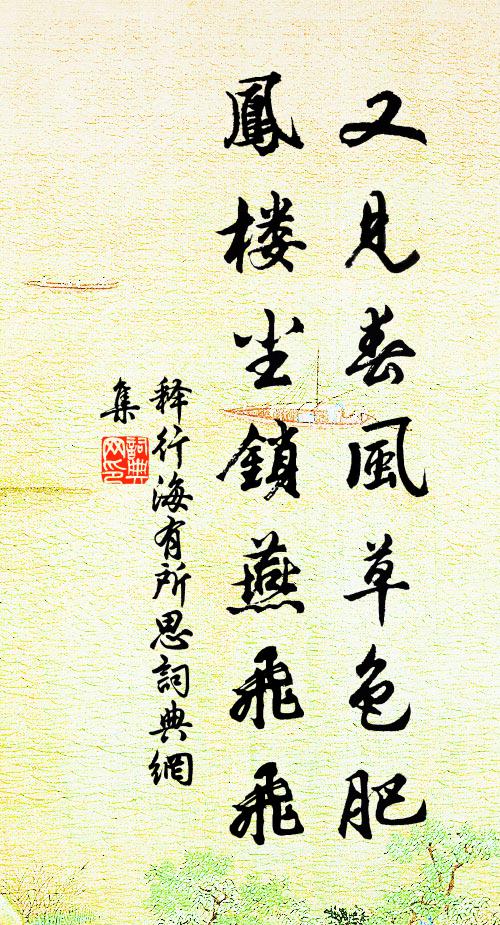 又見春風草色肥
鳳楼尘鎖燕飛飛
释行海有所思詞典網
集
詞典
网印